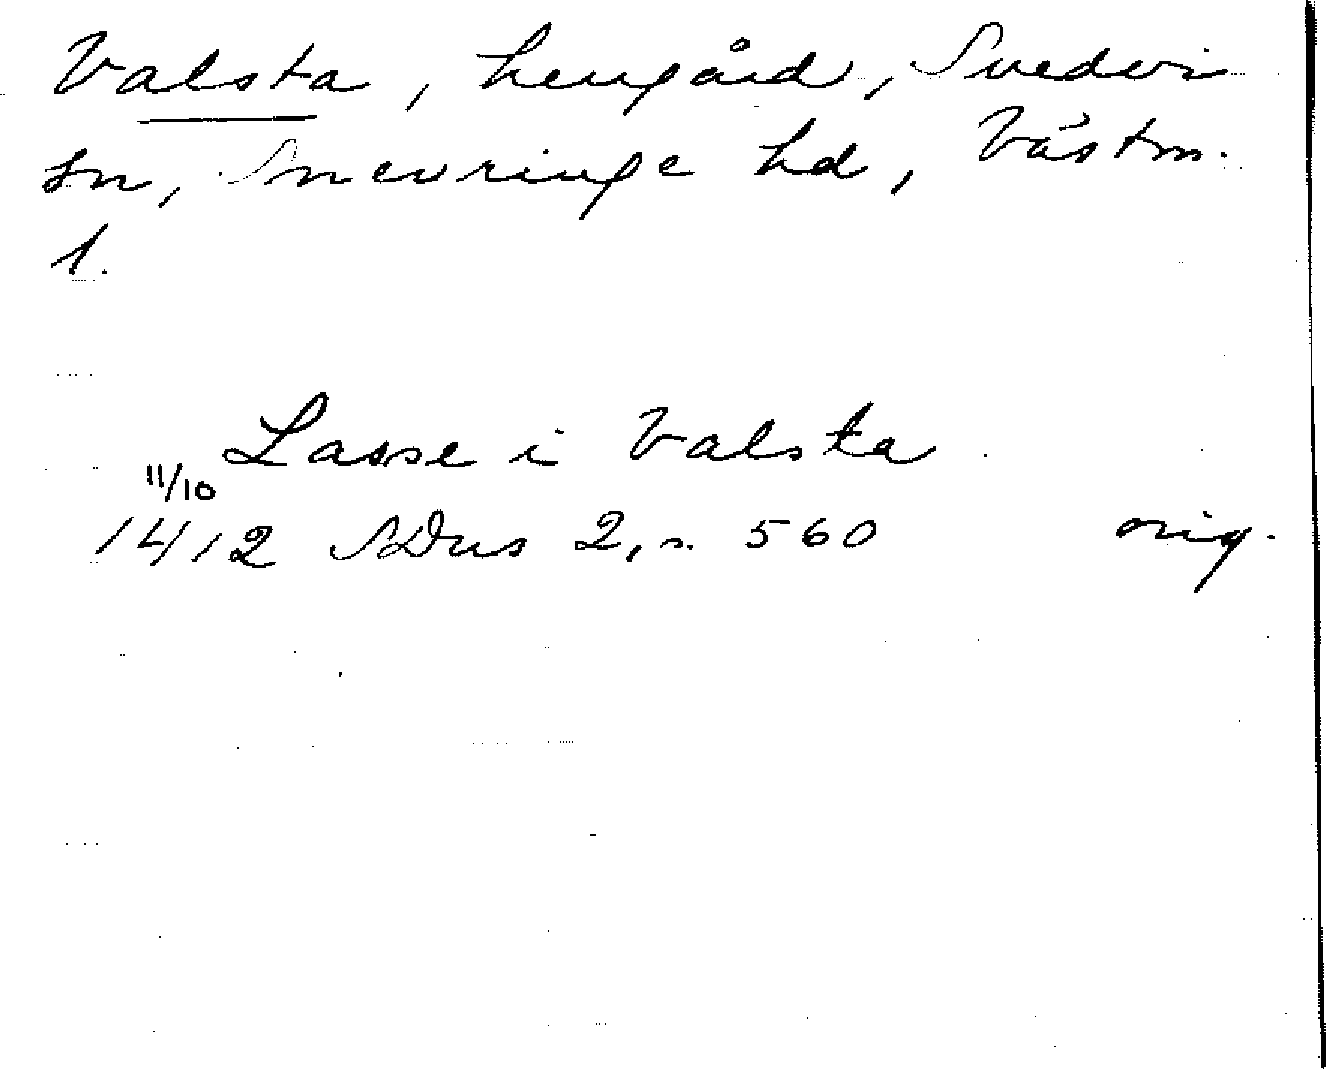 Valsta, hemgård, Svedvi
sn, Snevringe hd, Västm.
l.
Lasse i Valsta
11/10
1412 SDns 2, s. 560 orig.